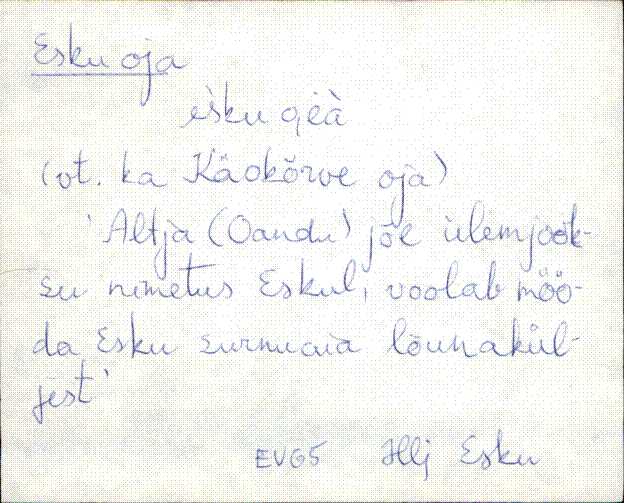 Esku oja
èsku ojà
(vt. ka Käokõrve oja)
'Altja (Oandu) jõe ülemjook-
su nimetus Eskul, voolab möö-
da Esku surnuaia lõunakül-
jest'
EV65 Hlj Esku